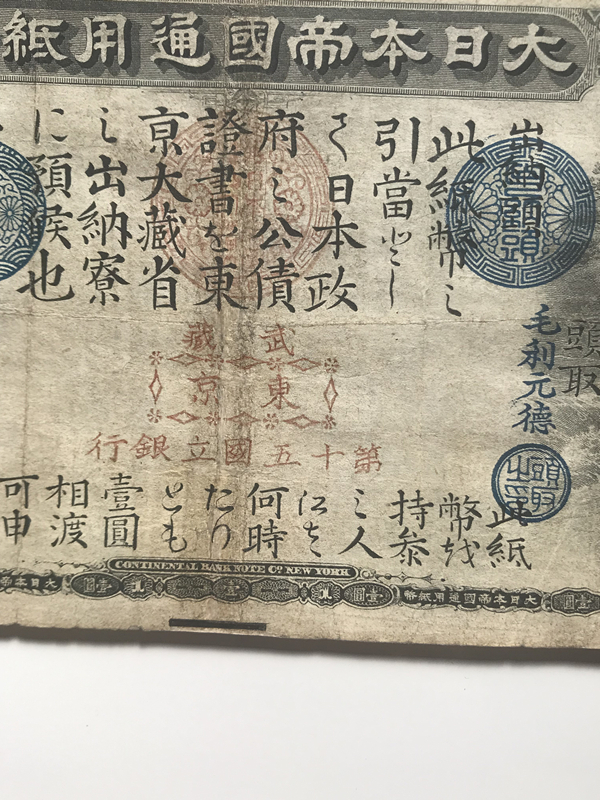 大日本帝國通用紙
此紙幣之
引當とし
て日本政
府之公債
證書を東
京大藏省
之出納寮
に預候也
頭取
毛利元德
頭取之印
武藏
東京
第十五國立銀行
此紙
幣越
持參
之人
何時
たり
とも
壹圓
相渡
可申
CONTINENTAL BANK NOTE Co. NEW YORK
壹圓
大日本帝國通用紙幣
壹圓
1
壹
1
壹圓
大日本帝